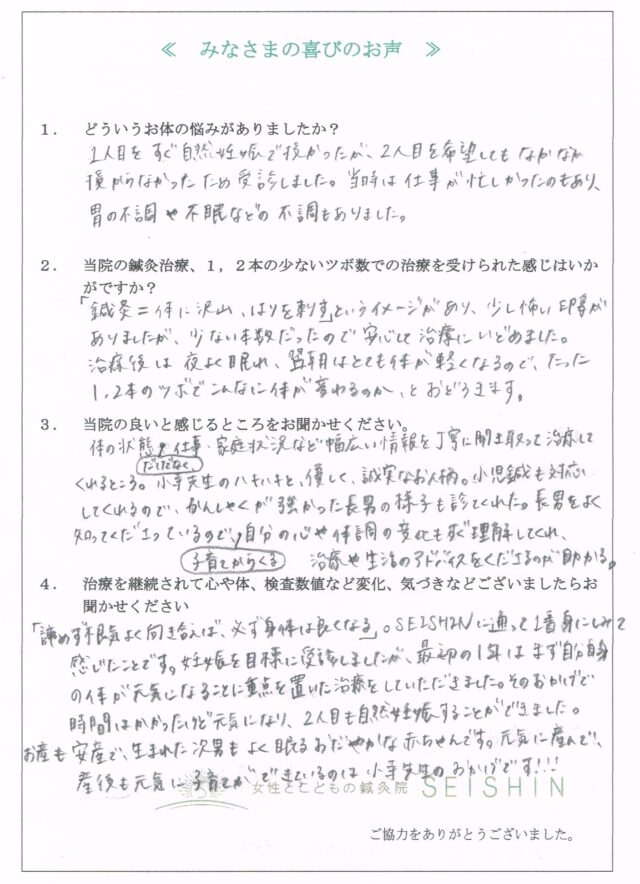 ≪ みなさまの喜びのお声 ≫
1. どういうお体の悩みがありましたか？
1人目をすぐ自然妊娠で授かったが、2人目を希望してもなかなか
授からなかったため受診しました。当時は仕事が忙しかったのもあり、
胃の不調や不眠などの不調もありました。
2. 当院の鍼灸治療、1，2本の少ないツボ数での治療を受けられた感じはいか
がですか？
「鍼灸＝体に沢山、はりを刺す」というイメージがあり、少し怖い印象が
ありましたが、少ない本数だったので安心して治療にいどめました。
治療後は夜よく眠れ、翌朝はとても体が軽くなるので、たった
1,2本のツボでこんなに体が変わるのか、とおどろきます。
3. 当院の良いと感じるところをお聞かせください。
体の状態だけでなく、仕事・家庭状況など幅広い情報を丁寧に聞き取って治療して
くれるところ。小寺先生のハキハキと、優しく、誠実なお人柄。小児鍼も対応
してくれるので、かんしゃくが強かった長男の様子も診てくれた。長男をよく
知ってくださっているので、子育てからくる自分の心や体調の変化もすぐ理解してくれ、
治療や生活のアドバイスをくださるのが助かる。
4. 治療を継続されて心や体、検査数値など変化、気づきなどございましたらお
聞かせください
「諦めず根気よく向き合えば、必ず身体は良くなる」。SEISHINに通って1番身にしみて
感じたことです。妊娠を目標に受診しましたが、最初の1年はまず自分自身
の体が元気になることに重点を置いた治療をしていただきました。そのおかげで
時間はかかったけど元気になり、2人目も自然妊娠することができました。
お産も安産で、生まれた次男もよく眠るおだやかな赤ちゃんです。元気に産んで、
産後も元気に子育てができているのは小寺先生のおかげです!!!
女性とこどもの鍼灸院 SEISHIN
ご協力をありがとうございました。